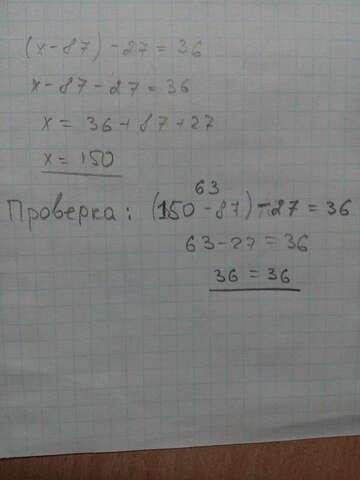 (x - 87) - 27 = 36
x - 87 - 27 = 36
x = 36 + 87 + 27
x = 150
63
Проверка: (150 - 87) - 27 = 36
63 - 27 = 36
36 = 36